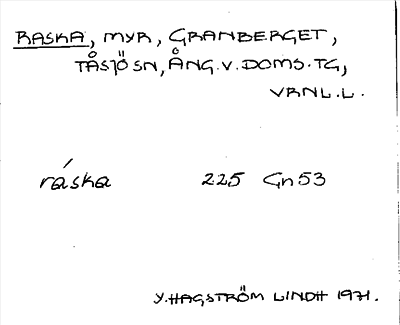 RASKA, MYR, GRANBERGET,
TÅSJÖ SN, ÅNG. V. DOMS. TG,
VRNL. L.
ráska 225 Gn 53
Y. HAGSTRÖM LINDH 1971.